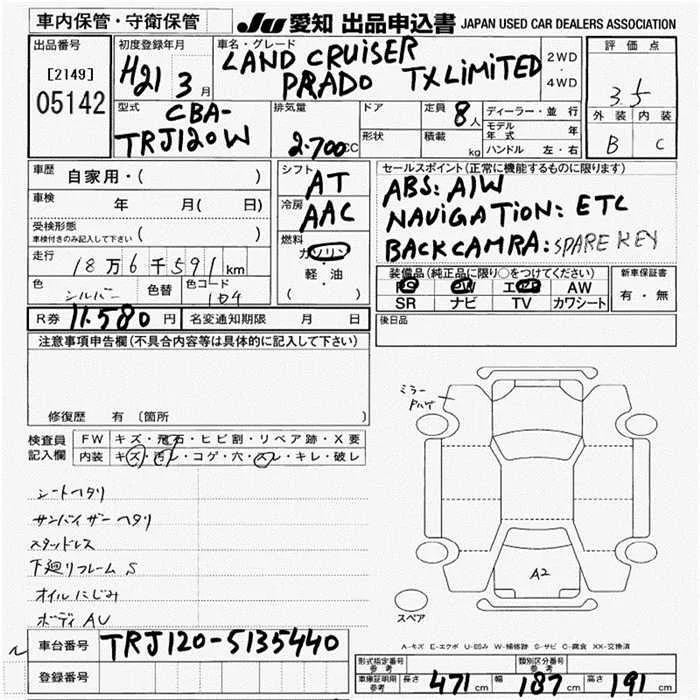 車内保管・守衛保管
JU 愛知 出品申込書 JAPAN USED CAR DEALERS ASSOCIATION
出品番号
[2149]
05142
初度登録年月
H21 3月
車名・グレード
LAND CRUISER
PRADO TX LIMITED
2WD
・
4WD
評価点
3.5
外装 内装
B C
型式
CBA-
TRJ120W
排気量
2.700CC
ドア
形状
定員 8人
積載 kg
ディーラー・並行
モデル年式 年
ハンドル 左・右
車歴 自家用・( )
車検 年 月( 日)
受検形態
車検付きのみ記入して下さい ( )
走行 18万6千591km
色 シルバー 色替 色コード 1D4
シフト
AT
冷房
AAC
燃料
ガソリン
軽・油
( )
セールスポイント(正常に機能するものに限ります)
ABS: A/W
NAVIGATION: ETC
BACK CAMRA: SPARE KEY
装備品(純正品に限り○をつけてください)
PS PW エアB AW
SR ナビ TV カワシート
新車保証書
有・無
R券 11.580円 名変通知期限 月 日
後日品
注意事項申告欄(不具合内容等は具体的に記入して下さい)
修復歴 有 〔箇所
検査員
記入欄
FW キズ・飛石・ヒビ割・リペア跡・X要
内装 キズ・汚レ・コゲ・穴・スレ・キレ・破レ
シートヘタリ
サンバイザーヘタリ
スタッドレス
下廻リフレームS
オイルにじみ
ボディAU
ミラー
A2
スペア
A-キズ E-エクボ U-凹み W-補修跡 S-サビ C-腐食 XX-交換済
車台番号 TRJ120-5135440
登録番号
形式指定番号 参考
類別区分番号 参考
車庫証明用 参考 長さ 471cm 幅 187cm 高さ 191cm